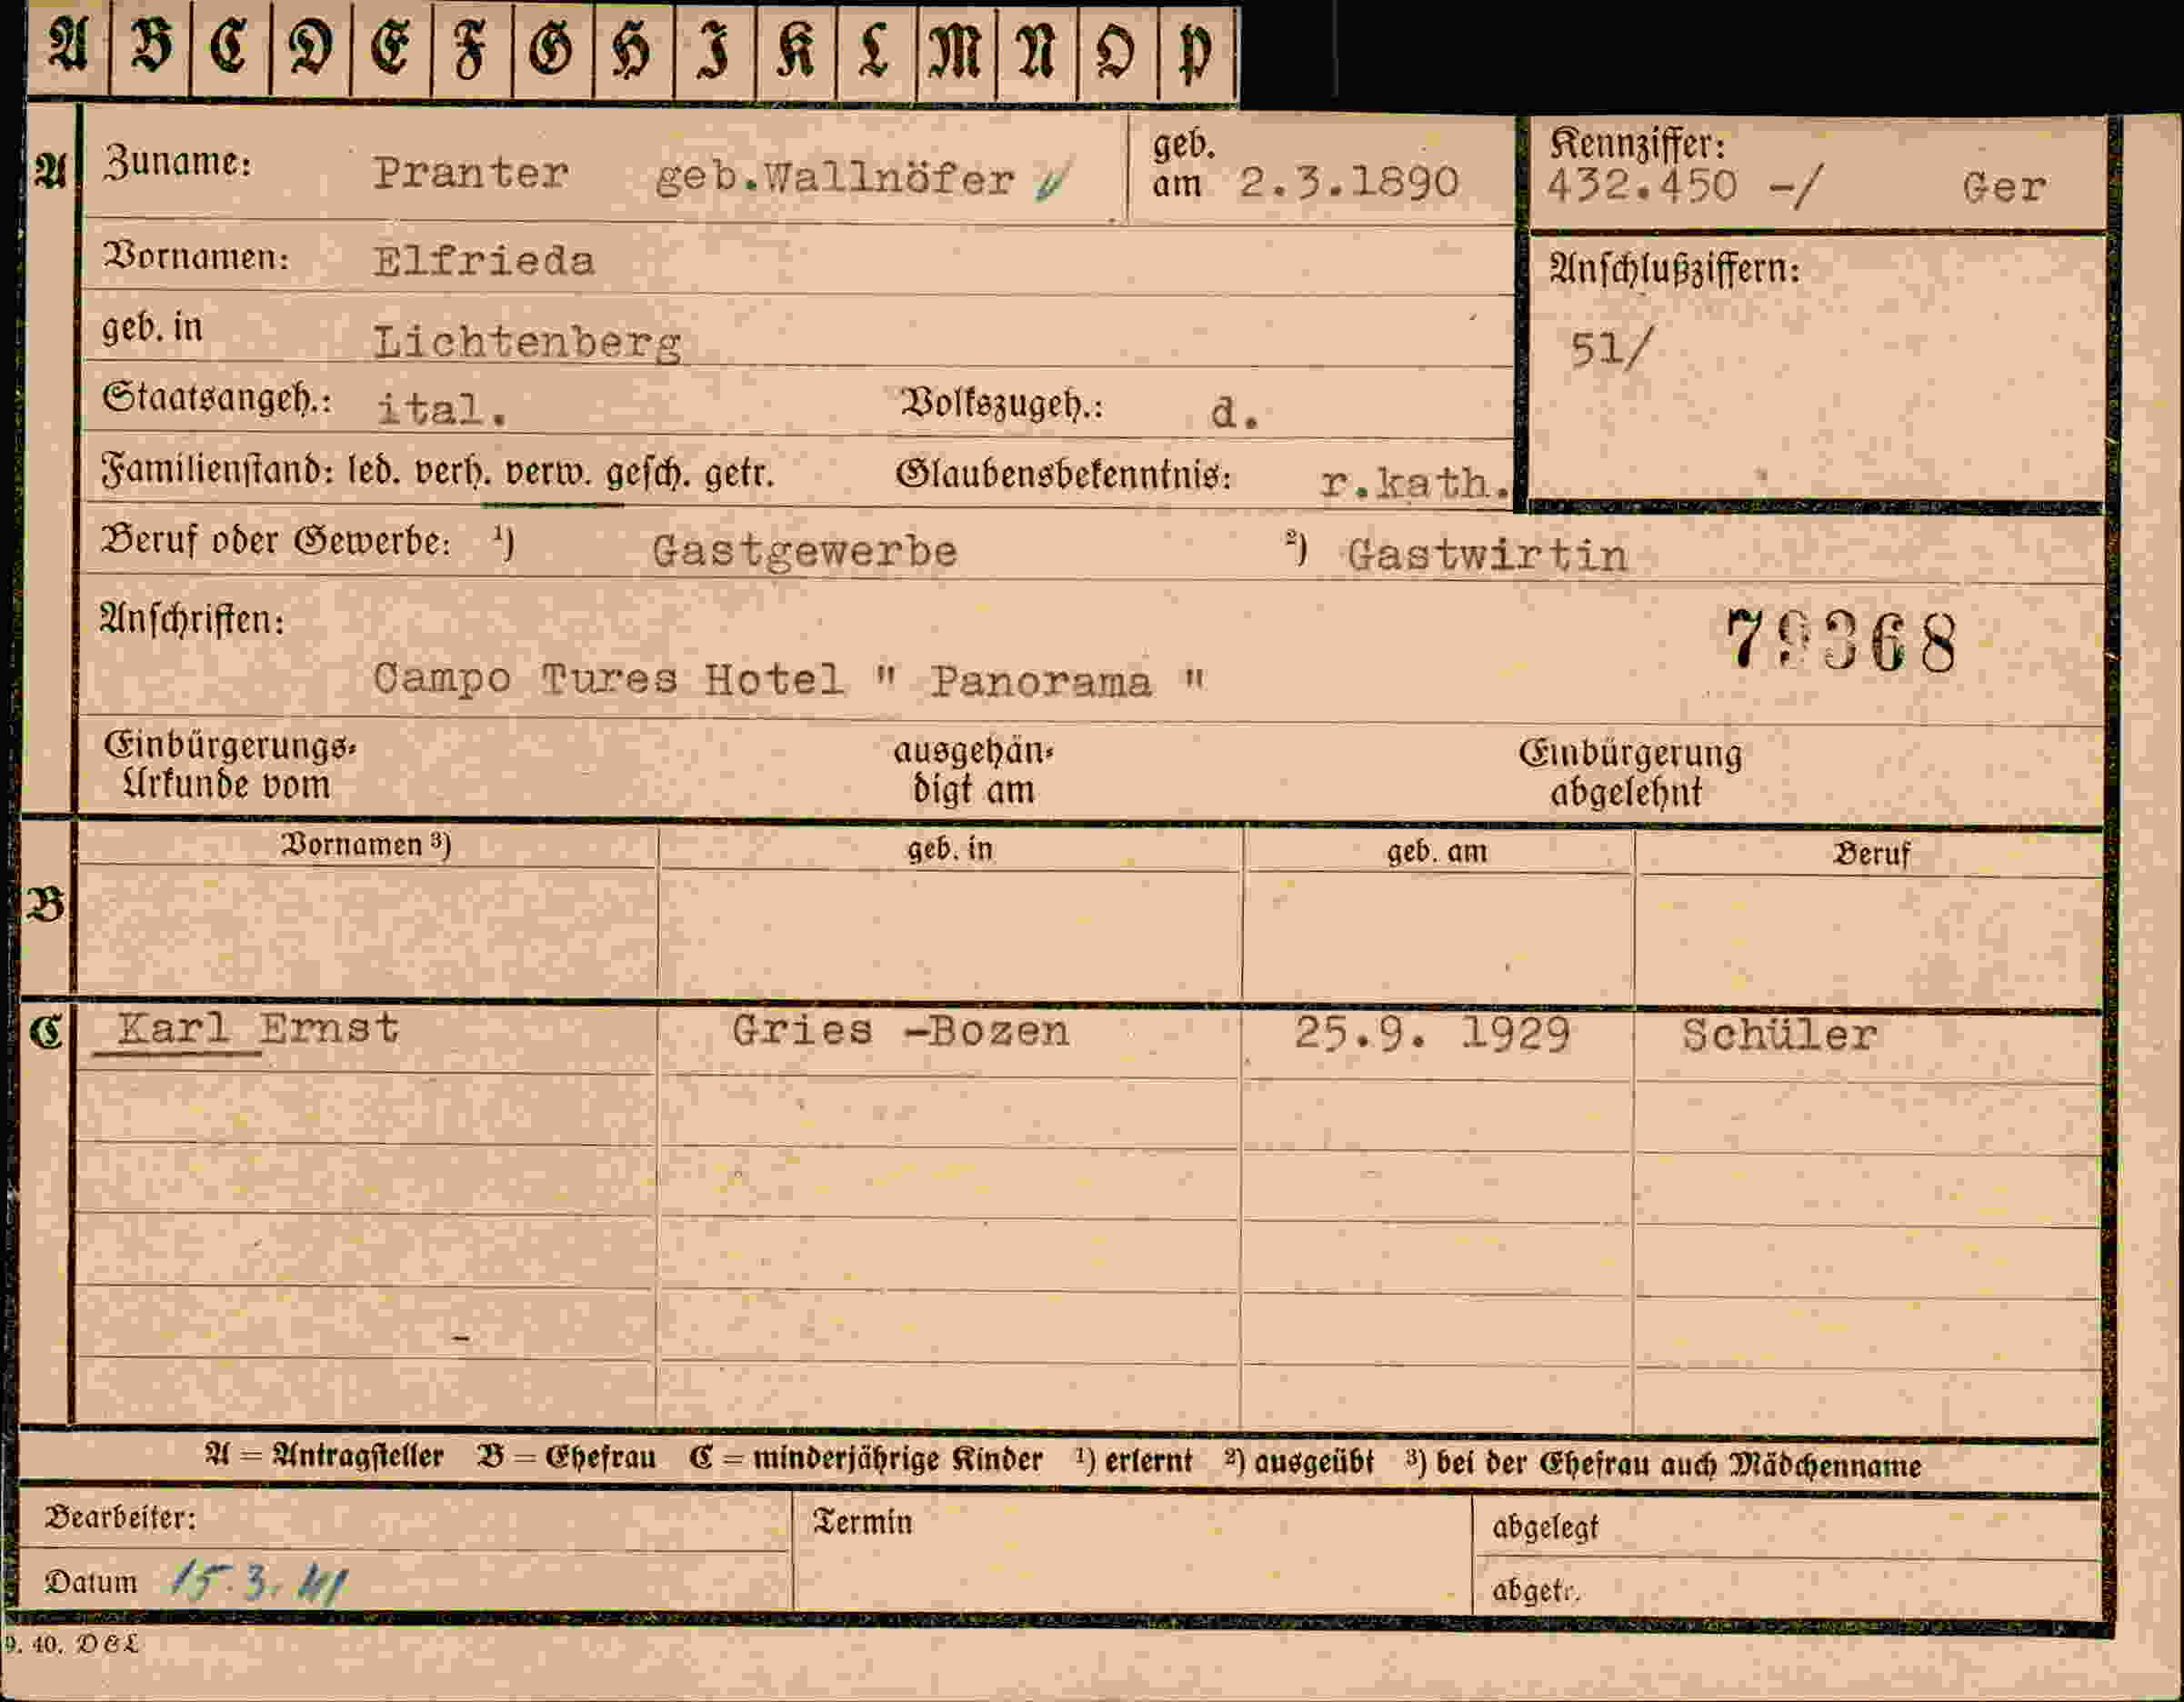 A B C D E F G H I K L M N O P
A Zuname: Pranter geb.Wallnöfer geb. am 2.3.1890 Kennziffer: 432.450 -/ Ger
Vornamen: Elfrieda Anschlußziffern:
geb. in Lichtenberg 51/
Staatsangeh.: ital. Volkszugeh.: d.
Familienstand: led. verh. verw. gesch. getr. Glaubensbekenntnis: r.kath.
Beruf oder Gewerbe: 1) Gastgewerbe 2) Gastwirtin
Anschriften: 79368
Campo Tures Hotel " Panorama "
Einbürgerungs- ausgehän- Einbürgerung
Urkunde vom digt am abgelehnt
Vornamen 3) geb. in geb. am Beruf
B
C Karl Ernst Gries -Bozen 25.9. 1929 Schüler
A = Antragsteller B = Ehefrau C = minderjährige Kinder 1) erlernt 2) ausgeübt 3) bei der Ehefrau auch Mädchenname
Bearbeiter: Termin abgelegt
Datum 15.3.41 abgetr.
9. 40. D&L